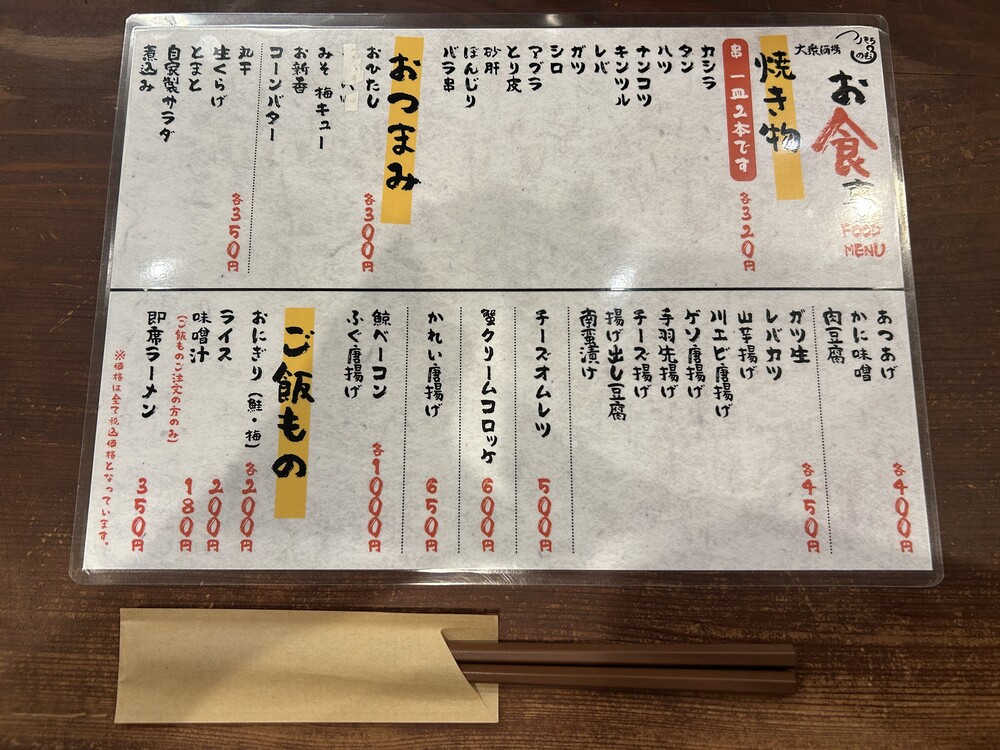 大衆酒場
お食事
FOOD
MENU
焼き物
串 一皿2本です
各320円
カシラ
タン
ハツ
ナンコツ
キンツル
レバ
ガツ
シロ
アブラ
とり皮
砂肝
ぼんじり
バラ串
おつまみ
各300円
おひたし
みそ 梅キュー
お新香
コーンバター
各350円
丸干
生くらげ
とまと
自家製サラダ
煮込み
あつあげ
かに味噌
肉豆腐
各400円
ガツ生
レバカツ
山芋揚げ
川エビ唐揚げ
ゲソ唐揚げ
手羽先揚げ
チーズ揚げ
揚げ出し豆腐
南蛮漬け
各450円
チーズオムレツ
500円
蟹クリームコロッケ
600円
かれい唐揚げ
650円
鯨ベーコン
ふぐ唐揚げ
各1000円
ご飯もの
おにぎり(鮭・梅)
各200円
ライス
200円
味噌汁
(ご飯ものご注文の方のみ)
180円
即席ラーメン
350円
※価格は全て税込価格となっています。